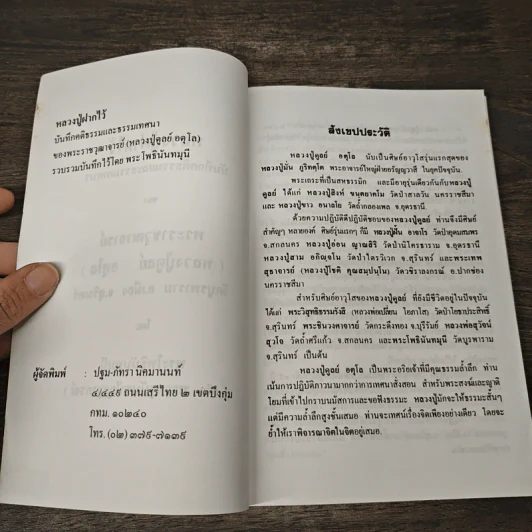 หลวงปู่ฝากไว้
บันทึกคติธรรมและธรรมเทศนา
ของพระราชวุฒาจารย์ (หลวงปู่ดูลย์ อตุโล)
รวบรวมบันทึกไว้โดย พระโพธินันทมุนี
ผู้จัดพิมพ์ : ปฐม-ภัทรา นิคมานนท์
๔/๔๔๙ ถนนเสรีไทย ๒ เขตบึงกุ่ม
กทม. ๑๐๒๔๐
โทร. (๐๒) ๓๗๙-๗๑๓๙
สังเขปประวัติ
หลวงปู่ดูลย์ อตุโล นับเป็นศิษย์อาวุโสรุ่นแรกสุดของ
หลวงปู่มั่น ภูริทตฺโต พระอาจารย์ใหญ่ฝ่ายอรัญญวาสี ในยุคปัจจุบัน
พระเถระที่เป็นสหธรรมิก และมีอายุรุ่นเดียวกันกับหลวงปู่
ดูลย์ ได้แก่ หลวงปู่สิงห์ ขนฺตยาคโม วัดป่าสาลวัน นครราชสีมา
และ หลวงปู่ขาว อนาลโย วัดถ้ำกลองเพล จ.อุดรธานี
ด้วยความปฏิบัติดีปฏิบัติชอบของหลวงปู่ดูลย์ ท่านจึงมีศิษย์
สำคัญๆ หลายองค์ ศิษย์รุ่นแรกๆ ก็มี หลวงปู่ฝั้น อาจาโร วัดป่าอุดมสมพร
จ.สกลนคร หลวงปู่อ่อน ญาณสิริ วัดป่านิโครธาราม จ.อุดรธานี
หลวงปู่สาม อกิญฺจโน วัดป่าไตรวิเวก จ.สุรินทร์ และพระเทพ
สุธาจารย์ (หลวงปู่โชติ คุณสมฺปนฺโน) วัดวชิราลงกรณ์ อ.ปากช่อง
นครราชสีมา
สำหรับศิษย์อาวุโสของหลวงปู่ดูลย์ ที่ยังมีชีวิตอยู่ในปัจจุบัน
ได้แก่ พระวิสุทธิธรรมรังสี (หลวงพ่อเปลี่ยน โอภาโส) วัดป่าโยธาประสิทธิ์
จ.สุรินทร์ พระชินวงศาจารย์ วัดกระดึงทอง จ.บุรีรัมย์ หลวงพ่อสุวัจน์
สุวโจ วัดถ้ำศรีแก้ว จ.สกลนคร และพระโพธินันทมุนี วัดบูรพาราม
จ.สุรินทร์ เป็นต้น
หลวงปู่ดูลย์ อตุโล เป็นพระอริยเจ้าที่มีคุณธรรมล้ำลึก ท่าน
เน้นการปฏิบัติภาวนามากกว่าการเทศนาสั่งสอน สำหรับพระสงฆ์และญาติ
โยมที่เข้าไปกราบนมัสการและขอฟังธรรมะ หลวงปู่มักจะให้ธรรมะสั้นๆ
แต่มีความล้ำลึกสูงชั้นเสมอ ท่านจะเทศน์เรื่องจิตเพียงอย่างเดียว โดยจะ
ย้ำให้เราพิจารณาจิตในจิตอยู่เสมอ.